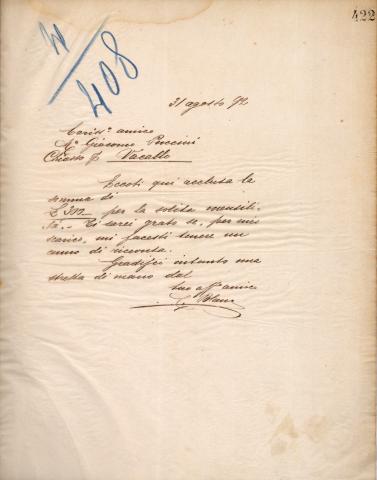 422
N
408
31 agosto 92
Cariss.º amico
M.º Giacomo Puccini
Chiasso p. Vacallo
Eccoti qui acclusa la
somma di
£ 300 per la solita mensili-
tà. - Ti sarei grato se, per mio
scarico, mi facesti tenere un
cenno di ricevuta.
Gradisci intanto una
stretta di mano dal
tuo aff.º amico
C. Blanc